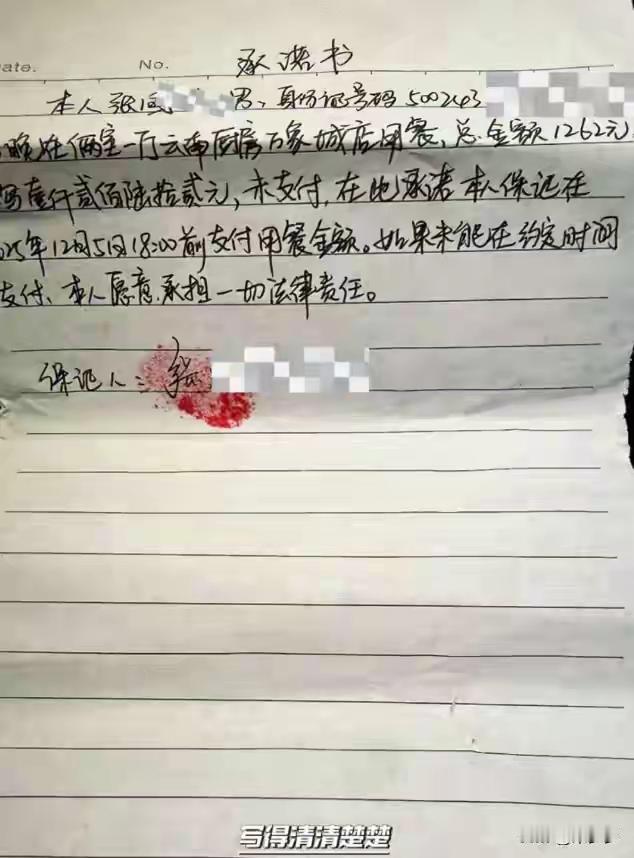 ate. No. 承诺书
本人张 男、身份证号码 500243
晚在俩室一厅云南厨房万象城店用餐，总金额1262元
写壹仟贰佰陆拾贰元，未支付，在此承诺本人保证在
025年12月5日18:00前支付用餐金额。如果未能在约定时间
支付、本人愿意承担一切法律责任。
保证人：张
写得清清楚楚